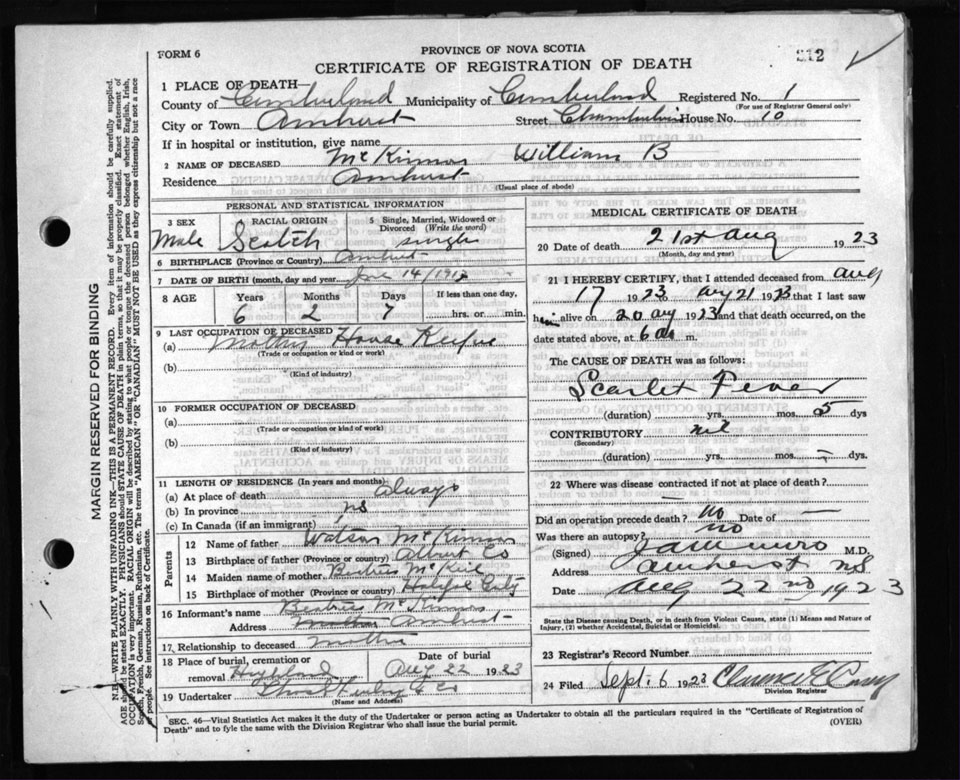 FORM 6
PROVINCE OF NOVA SCOTIA
CERTIFICATE OF REGISTRATION OF DEATH
212
1 PLACE OF DEATH—
County of Cumberland Municipality of Cumberland Registered No. 1
(For use of Registrar General only)
City or Town Amherst Street House No. 10
If in hospital or institution, give name
2 NAME OF DECEASED McKinnon William B
Residence Amherst
(Usual place of abode)
PERSONAL AND STATISTICAL INFORMATION
3 SEX Male
4 RACIAL ORIGIN Scotch
5 Single, Married, Widowed or Divorced (Write the word) single
6 BIRTHPLACE (Province or Country) Amherst
7 DATE OF BIRTH (month, day and year) June 14/1917
8 AGE Years 6 Months 2 Days 7 If less than one day, hrs. or min.
9 LAST OCCUPATION OF DECEASED
(a) Mother House
(Trade or occupation or kind or work)
(b)
(Kind of industry)
10 FORMER OCCUPATION OF DECEASED
(a)
(Trade or occupation or kind of work)
(b)
(Kind of industry)
11 LENGTH OF RESIDENCE (In years and months)
(a) At place of death always
(b) In province NS
(c) In Canada (if an immigrant)
Parents
12 Name of father Watson McKinnon
13 Birthplace of father (Province or country) Albert Co
14 Maiden name of mother
15 Birthplace of mother (Province or country) Halifax City
16 Informant's name Beatrice McKinnon
Address Amherst
17 Relationship to deceased mother
18 Place of burial, cremation or removal Highland
Date of burial Aug 22 1923
19 Undertaker
(Name and Address)
MEDICAL CERTIFICATE OF DEATH
20 Date of death 21st Aug 1923
(Month, day and year)
21 I HEREBY CERTIFY, that I attended deceased from Aug
17 1923 to Aug 21 1923 that I last saw
him alive on 20 Aug 1923 and that death occurred, on
date stated above, at 6 a m.
The CAUSE OF DEATH was as follows:
Scarlet Fever
(duration) yrs. mos. 5 dys
CONTRIBUTORY nil
(Secondary)
(duration) yrs. mos. dys.
22 Where was disease contracted if not at place of death? —
Did an operation precede death? No Date of —
Was there an autopsy? no
(Signed) M.D.
Address Amherst NS
Date Aug 22nd 1923
State the Disease causing Death, or in death from Violent Causes, state (1) Means and Nature of
Injury, (2) whether Accidental, Suicidal or Homicidal.
23 Registrar's Record Number
24 Filed Sept. 6 1923 Clarence E
Division Registrar
SEC. 46—Vital Statistics Act makes it the duty of the Undertaker or person acting as Undertaker to obtain all the particulars required in the "Certificate of Registration of
Death" and to fyle the same with the Division Registrar who shall issue the burial permit.
(OVER)
MARGIN RESERVED FOR BINDING
N.B.—WRITE PLAINLY WITH UNFADING INK—THIS IS A PERMANENT RECORD. Every item of information should be carefully supplied.
AGE should be stated EXACTLY. PHYSICIANS should STATE CAUSE OF DEATH in plain terms, so that it may be properly classified. Exact statement of
OCCUPATION is very important. RACIAL ORIGIN will be described by stating to what people or tongue the deceased person belonged whether English, Irish,
Scotch, French, German, Russian, Ruthenian, etc. The terms "AMERICAN" or "CANADIAN" MUST NOT BE USED as they express citizenship but not a race
of people. See instructions on back of Certificate.